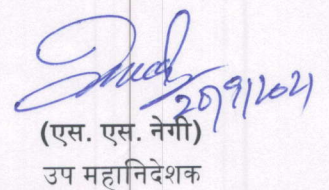 20/9/2021
(एस. एस. नेगी)
उप महानिदेशक